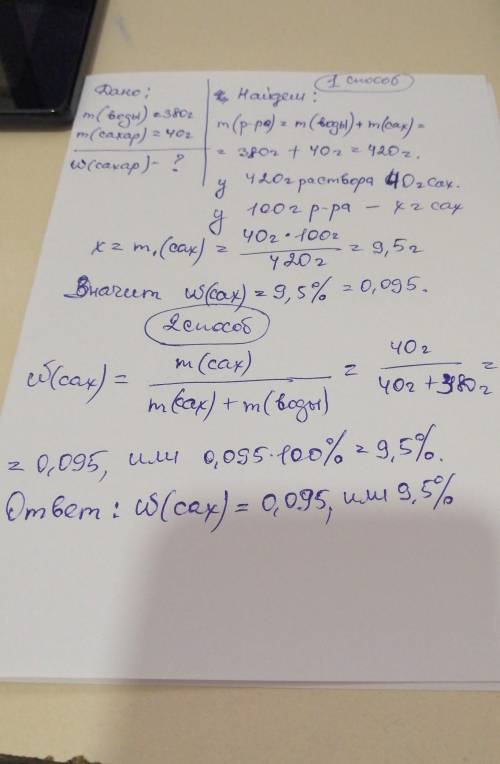 1 способ
Дано:
m(воды) = 380г
m(сахар) = 40г
ω(сахар) - ?
Найдем:
m(р-ра) = m(воды) + m(сах) =
= 380г + 40г = 420г.
у 420г раствора 40г сах.
у 100г р-ра – xг сах
x = m₁(сах) = 40г·100г / 420г = 9,5г
Значит ω(сах) = 9,5% = 0,095.
2 способ
ω(сах) = m(сах) / m(сах) + m(воды) = 40г / 40г + 380г =
= 0,095, или 0,095·100% = 9,5%.
Ответ: ω(сах) = 0,095, или 9,5%